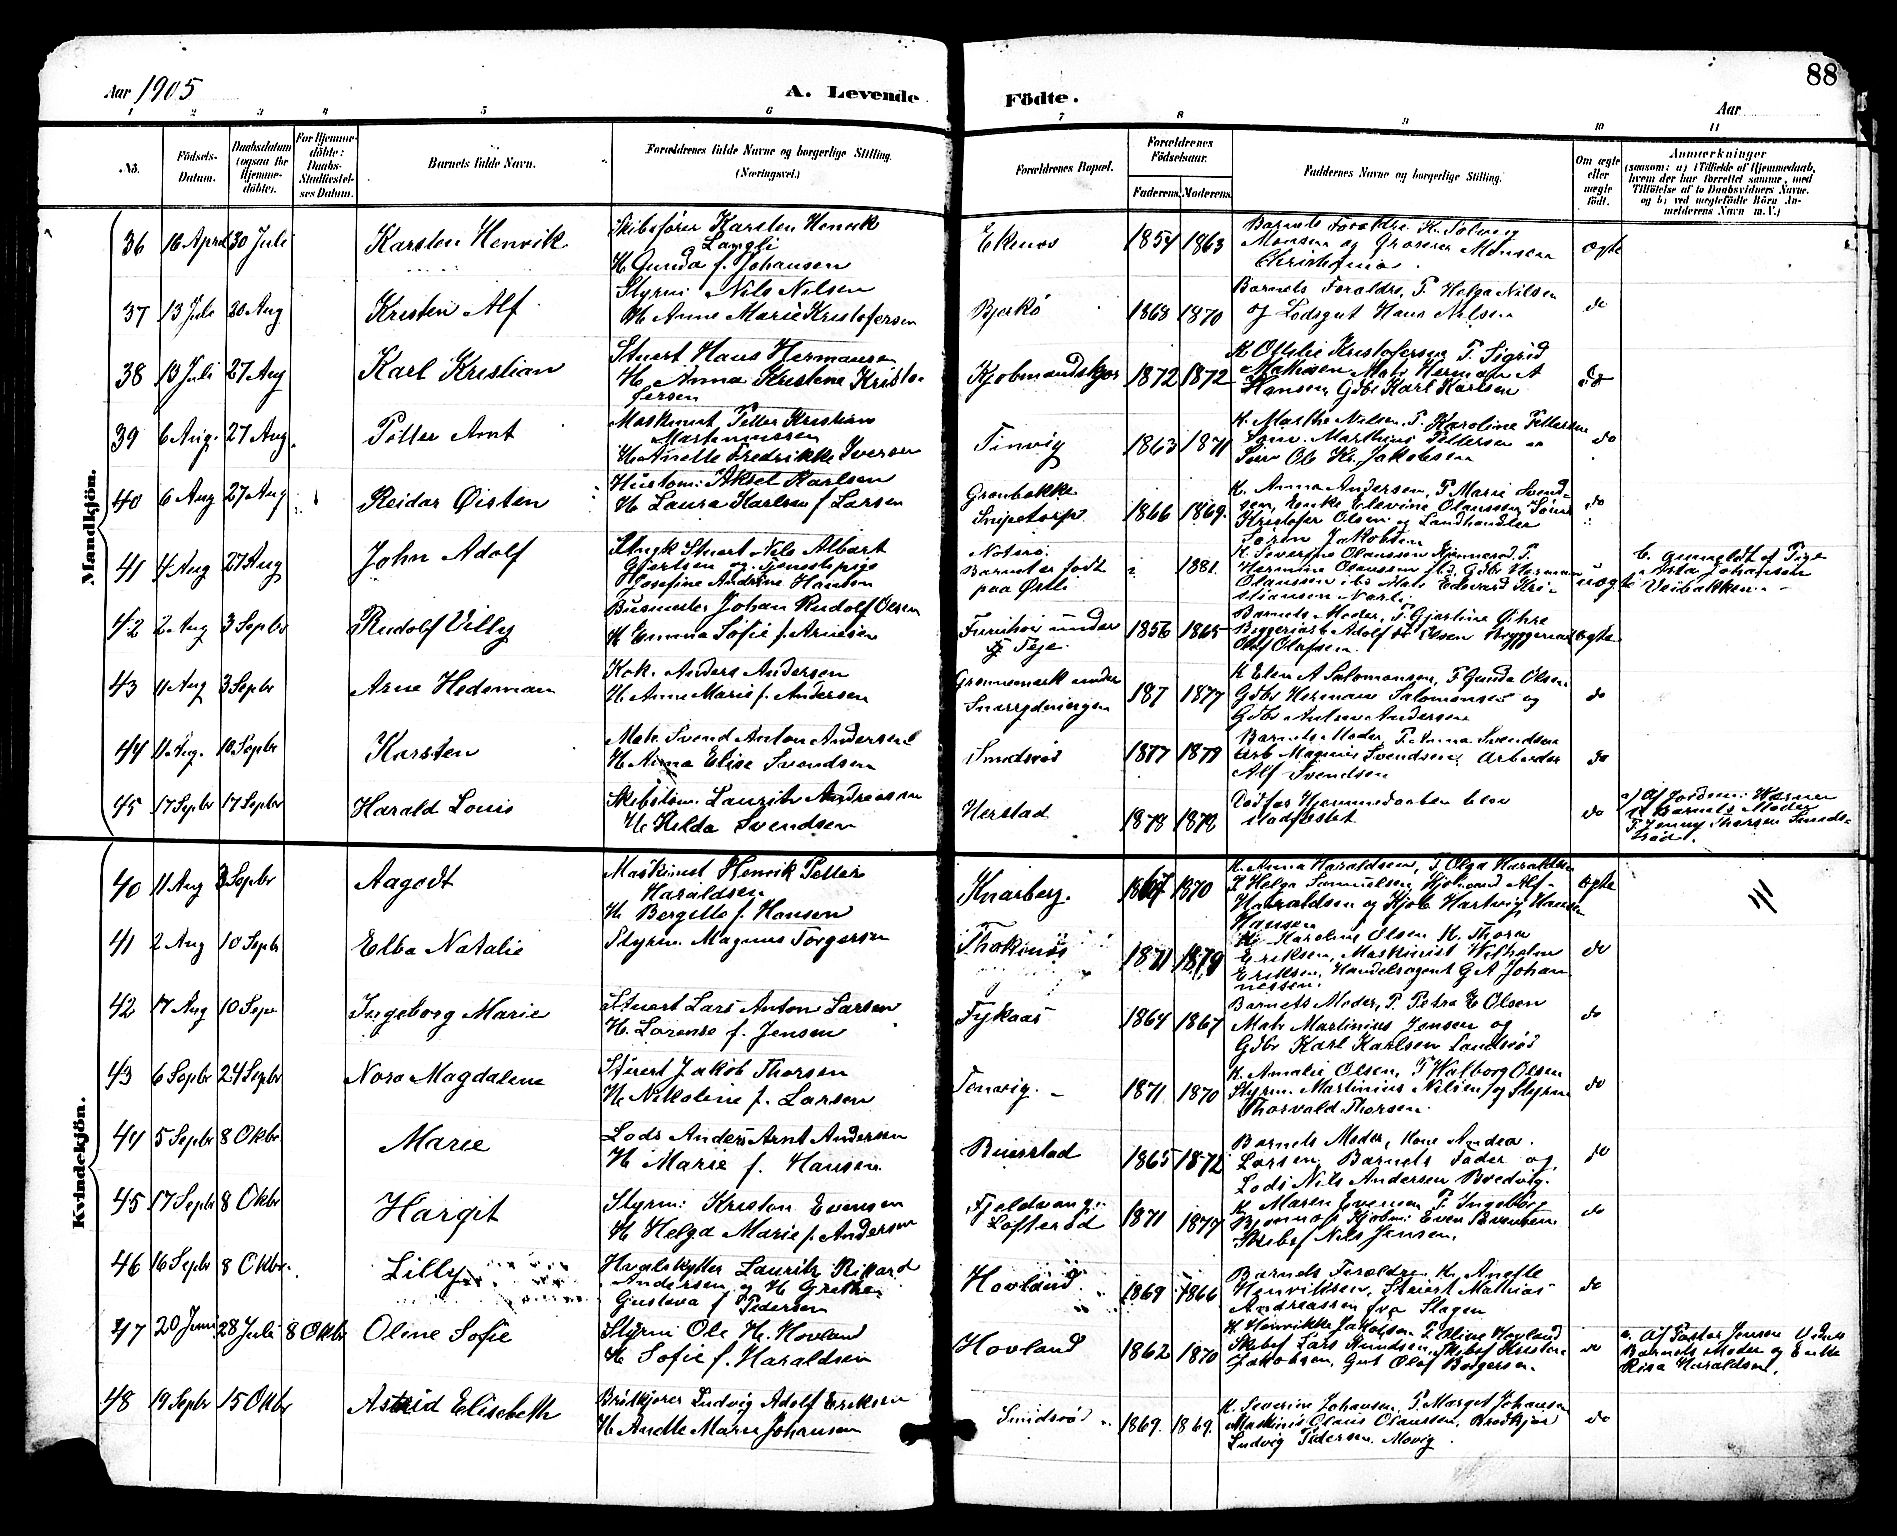 Aar 1905
A. Levende
Födte.
Aar
88
1 2 3 4 5 6 7 8 9 10 11
No.
Födsels-Datum.
Daabsdatum (ogsaa for Hjemme-döbte).
For Hjemme-döbte: Daabs-Stadfæstel-ses Datum.
Barnets fulde Navn.
Forældrenes fulde Navne og borgerlige Stilling. (Næringsvei.)
Forældrenes Bopæl.
Forældrenes Födselsaar.
Faderens. Moderens.
Faddernes Navne og borgerlige Stilling.
Om ægte eller uægte födt.
Anmærkninger
(saasom: a) i Tilfælde af Hjemmedaab, hvem der har forrettet samme, med Tilföielse af to Daabsvidners Navne. og b) ved uægtefödte Börn An-melderens Navn m. V.)
Mandkjön.
36 16 April 30 Juli Karsten Henrik Skibsfører Karsten Henrik
Langli
H. Gunda f. Johansen Ekenes 1854 1863 Barnets Forældre K. Solveig
Monsen og Grosserer Monsen
Christiania. ægte
37 13 Juli 20 Aug Kristen Alf Styrm Nils Nilsen
H. Anne Marie Kristofersen Bjerkö 1868 1870 Barnets Forældre, P. Helga Nilsen
og Lodsgut Hans Nilsen do
38 13 Juli 27 Aug Karl Kristian Stuert Hans Hermansen
H. Anna Kristine Kristo-
fersen Kjøbmandskjær 1872 1872 K Ottilie Kristofersen P. Sigrid
Mathisen Matr Herman A
Hansen, Gdbr Karl Karlsen do
39 6 Aug. 27 Aug. Petter Arnt Maskinist Petter Kristian
Martinussen
H. Anette Fredrikke Iversen Tinvig 1863 1871 K. Marthe Nilsen, P. Karoline Pettersen
Sönr. Marthius Pettersen og
Ole Kr. Jakobsen do
40 6 Aug 27 Aug Reidar Øisten Hustom. Aksel Karlsen
H. Laura Karlsen f Larsen Grønbakke
Snipetorp 1866 1869. K. Anna Andersen, P Marie Svend-
sen, Enke Elevine Olaussen,
Kristofer Olsen og Landhandler
Søren Jakobsen do
41 4 Aug 27 Aug John Adolf Stuert Nils Albert
Gjertsen og Tjenestepige
Josefine Andrine Hansen Nøterø.
Barnet er født
paa Ørsli 1881. K. Severine Olaussen P.
Hermine Olaussen Gdbr Herman
Olaussen Matr Edevard Kri-
stiansen uægte b. anmeldt af Pige
Asta Johansen
Veibakken.
42 2 Aug 3 Septbr Rudolf Villy Busmester Johan Rudolf Olsen
H Emma Sofie f. Arnesen Furuheim under
Teje. 1856 1865 Barnets Moder, P Gjertine
Byggeriarb Adolf Olsen Bryggeriarb
Olaf Olafsen. ægte
43 11 Aug 3 Septbr Arne Hedeman Kok. Anders Andersen
H. Anne Marie f. Andersen Grønnemark under 187 1877 K Elen A Salomonsen, P Gunda Olsen
Gdbr Herman Salomonsen og
Gdbr Anton Andersen do
44 11 Aug. 10 Septbr Karsten Matr Svend Anton Andersen
H. Anna Elise Svendsen Smidsrød 1877 1879 Barnets Moder, P. Anna Svendsen
Arb Magnus Svendsen, Arbeider
Alf Svendsen do
45 17 Septbr 17 Septbr Harald Louis Skibstøm. Lauritz Andreassen
H. Hilda Svendsen Herstad 1878 1872 Død før Hjemmedaaben blev
stadfæstet do a) Af Jordm: Werner
Barnets Moder
P Jenny Thorsen Smids-
rød.
Kvindekjön.
40 11 Aug 3 Septbr Aagodt Maskinist Henrik Petter
Haraldsen
H. Bergitte f. Hansen Knarberg. 1867 1870 K. Anna Haraldsen, P Olga Haraldsen
P Helga Samuelsen, Kjøbmand Alf
Haraldsen og Kjøb Hartvig Hansen
Hansen ægte
41 2 Aug 10 Septbr Elba Natalie Styrm. Magnus Torgersen 1871 1879 K. Karoline Olsen K. Thora
Eriksen, Maskinist Wilhelm
Eriksen, Handelsagent G A Johan
nessen. do
42 17 Aug 10 Sept Ingeborg Marie Stuert Lars Anton Larsen
H. Lorense f. Jensen Fykaas 1864 1867 Barnets Moder, P. Petra E Olsen
Matr Martinius Jensen og
Gdbr Karl Karlsen Sandsrød do
43 6 Septbr 24 Septbr Nora Magdalene Stuert Jakob Thorsen
H. Nikoline f. Larsen Tenvig. 1871. 1870 K. Amalie Olsen, P Walborg Olsen
Styrm. Martinius Nilsen og Styrm
Thorvald Thorsen. do
44 5 Septbr 8 Oktbr Marie Lods Anders Arnt Andersen
H Marie f. Hansen Buerstad 1865 1872 Barnets Moder, Kone Andea
Larsen, Barnets Fader og
Lods Nils Andersen Bredvig. do
45 17 Septbr 8 Oktbr Hargit Styrm: Kristen Evensen
H Helga Marie f. Andersen Fjeldvang
Lofterød 1871 1877 K Maren Evensen P. Ingeborg
Kjøbm: Even Evensen
Skibsf Nils Jensen. do
46 16 Septbr 8 Oktbr. Lilly Hvalskytter Lauritz Rikard
Andersen og H Grethe
Gustava f Pedersen Hovland 1869 1866 Barnets Forældre K. Anette
Henriksen, Stuert Mathias
Andreassen fra Slagen do
47 20 Juni 28 Juli 8 Oktbr Oline Sofie Styrm Ole H. Hovland
H Sofie f. Haraldsen Hovland 1862 1870 K Henrikke Jakobsen, P. Oline Hovland
Skibsf Lars Knudsen, Skibsf Kristen
Jakobsen, Gut Olaf Borgersen. do a. Af Pastor Jensen Vidner
Barnets Moder og Enke
Risa Haraldsen.
48 19 Septbr 15 Oktbr Astrid Elisebeth Brødkjører Ludvig Adolf Eriksen
H. Anette Marie Johansen Smidsrød 1869. 1869. K. Severine Johansen, P. Margit Johansen
Maskinist Olaus Olaussen, Brødkjør
Ludvig Pedersen. do